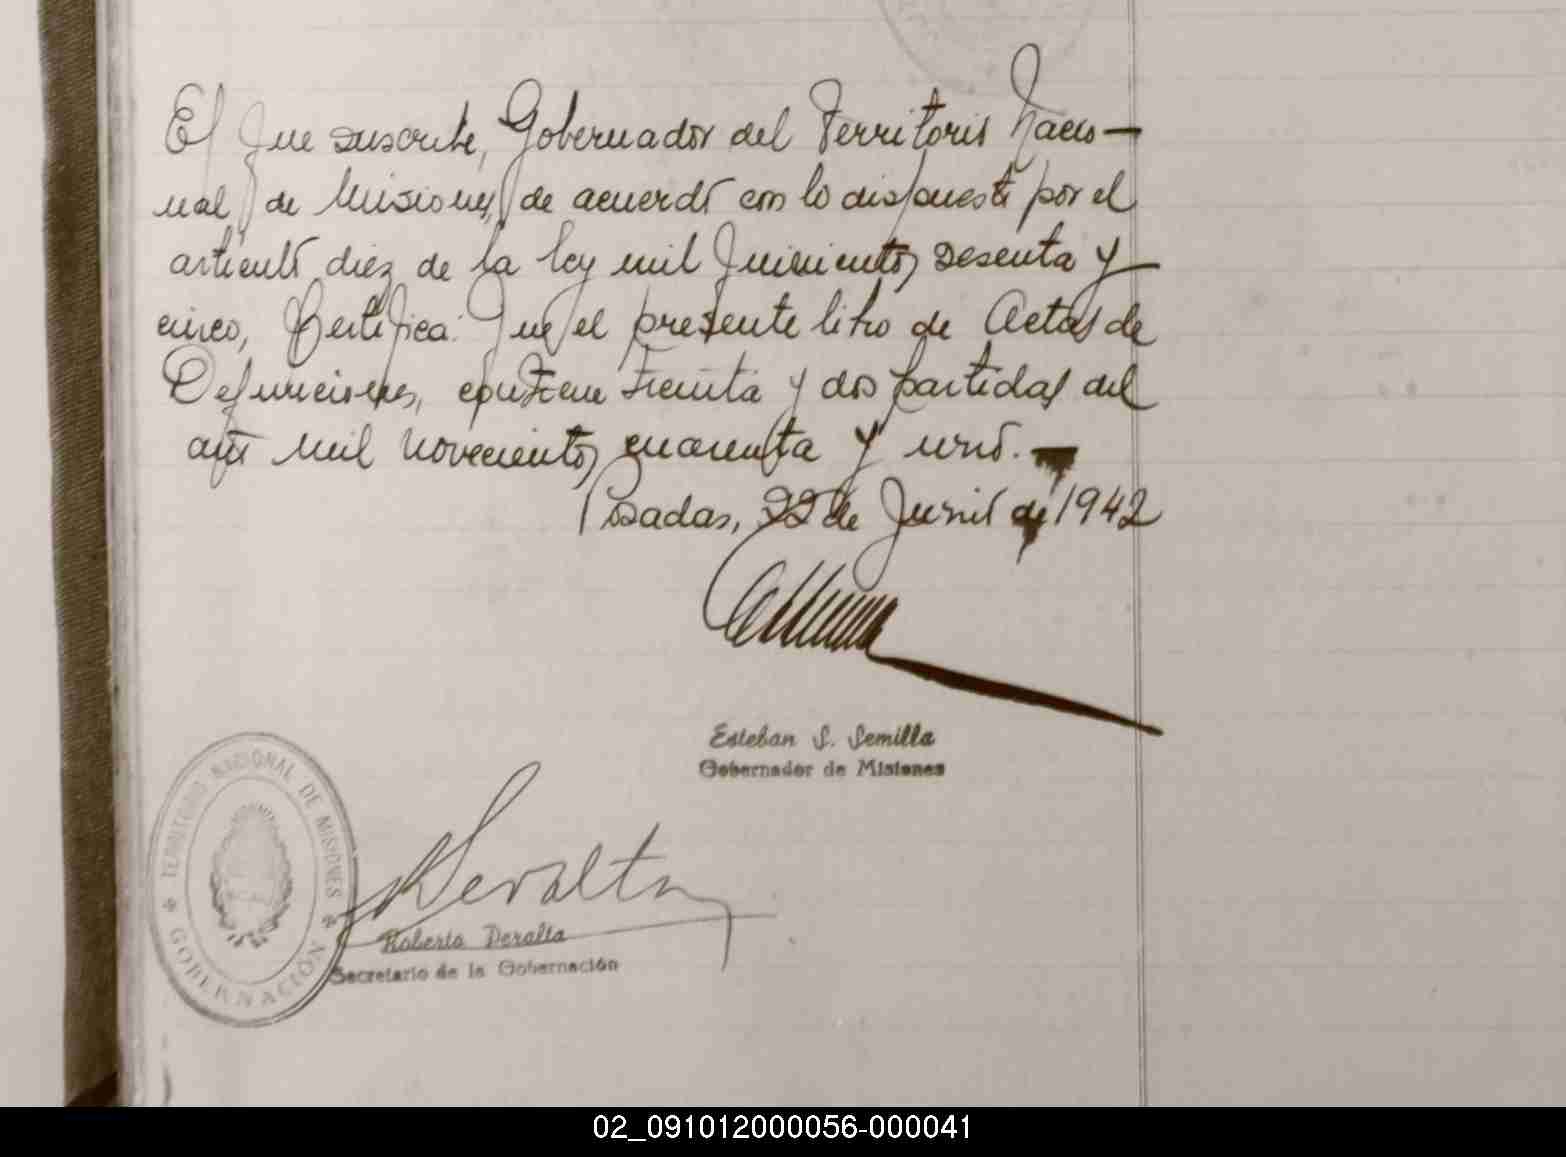 El que suscribe, Gobernador del Territorio Nacio-
nal de Misiones, de acuerdo con lo dispuesto por el
artículo diez de la ley mil quinientos sesenta y
cinco, Certifica: Que el presente libro de Actas de
Defunciones, contiene treinta y dos partidas del
año mil novecientos cuarenta y uno.-
Posadas, 22 de Junio de 1942
Esteban S. Semilla
Gobernador de Misiones
TERRITORIO NACIONAL DE MISIONES
GOBERNACIÓN
Peralta
Roberto Peralta
Secretario de la Gobernación
02_091012000056-000041